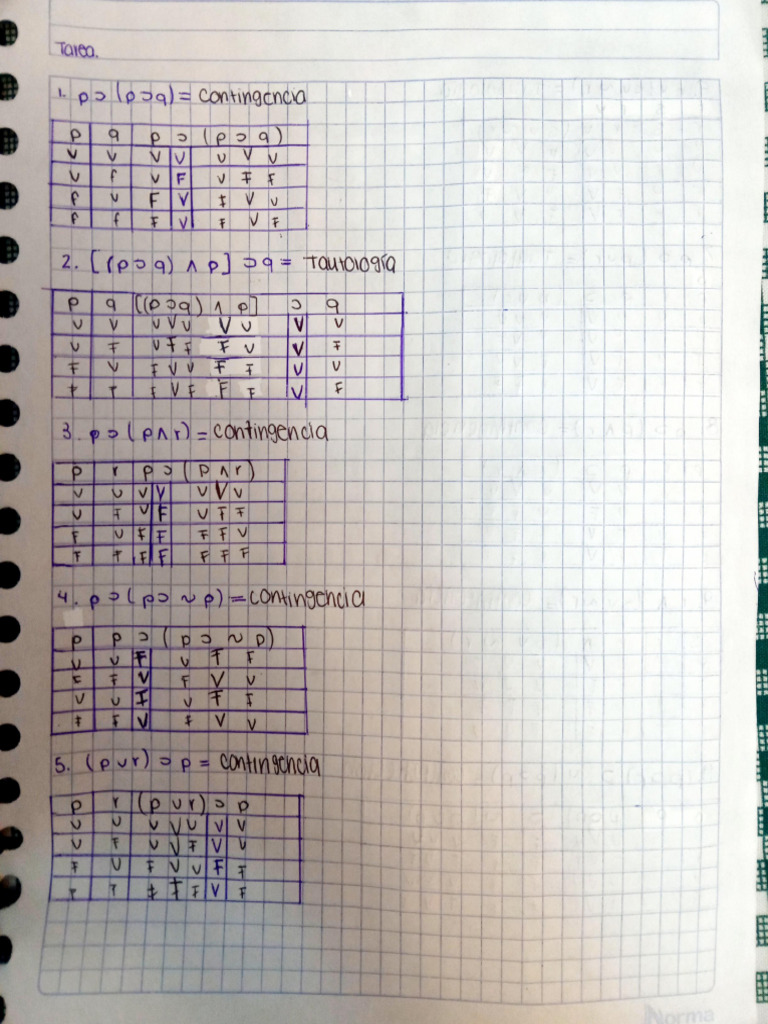 Tarea.
1. p ⊃ (p ⊃ q) = contingencia
p q p ⊃ (p ⊃ q)
V V V V V V V
V F V F V F F
F V F V F V V
F F F V F V F
2. [(p ⊃ q) ∧ p] ⊃ q = Tautología
p q [(p ⊃ q) ∧ p] ⊃ q
V V V V V V V V V
V F V F F F V V F
F V F V V F F V V
F F F V F F F V F
3. p ⊃ (p ∧ r) = contingencia
p r p ⊃ (p ∧ r)
V V V V V V V
V F V F V F F
F V F F F F V
F F F F F F F
4. p ⊃ (p ⊃ ~ p) = contingencia
p p ⊃ (p ⊃ ~ p)
V V F V F F
F F V F V V
V V F V F F
F F V F V V
5. (p ∪ r) ⊃ p = contingencia
p r (p ∪ r) ⊃ p
V V V V V V V
V F V V F V V
F V F V V F F
F F F F F V F
Norma